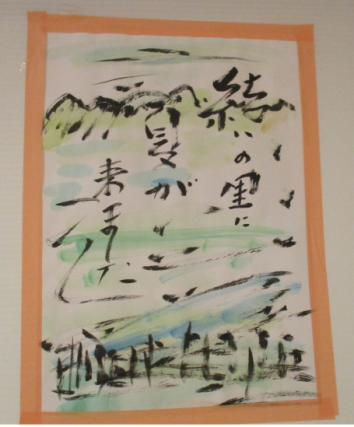 結いの里に
夏が
来ました